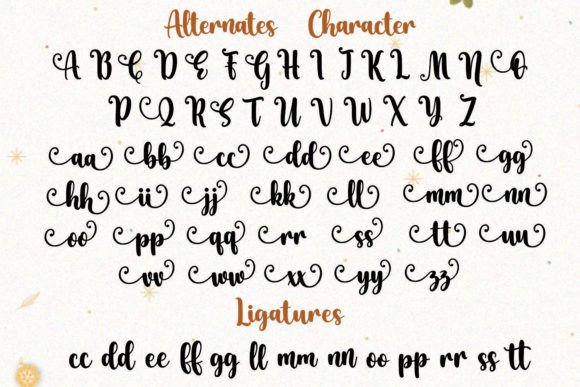 Alternates Character
A B C D E F G H I J K L M N O
P Q R S T U V W X Y Z
aa bb cc dd ee ff gg
hh ii jj kk ll mm nn
oo pp qq rr ss tt uu
vv ww xx yy zz
Ligatures
cc dd ee ff gg ll mm nn oo pp rr ss tt